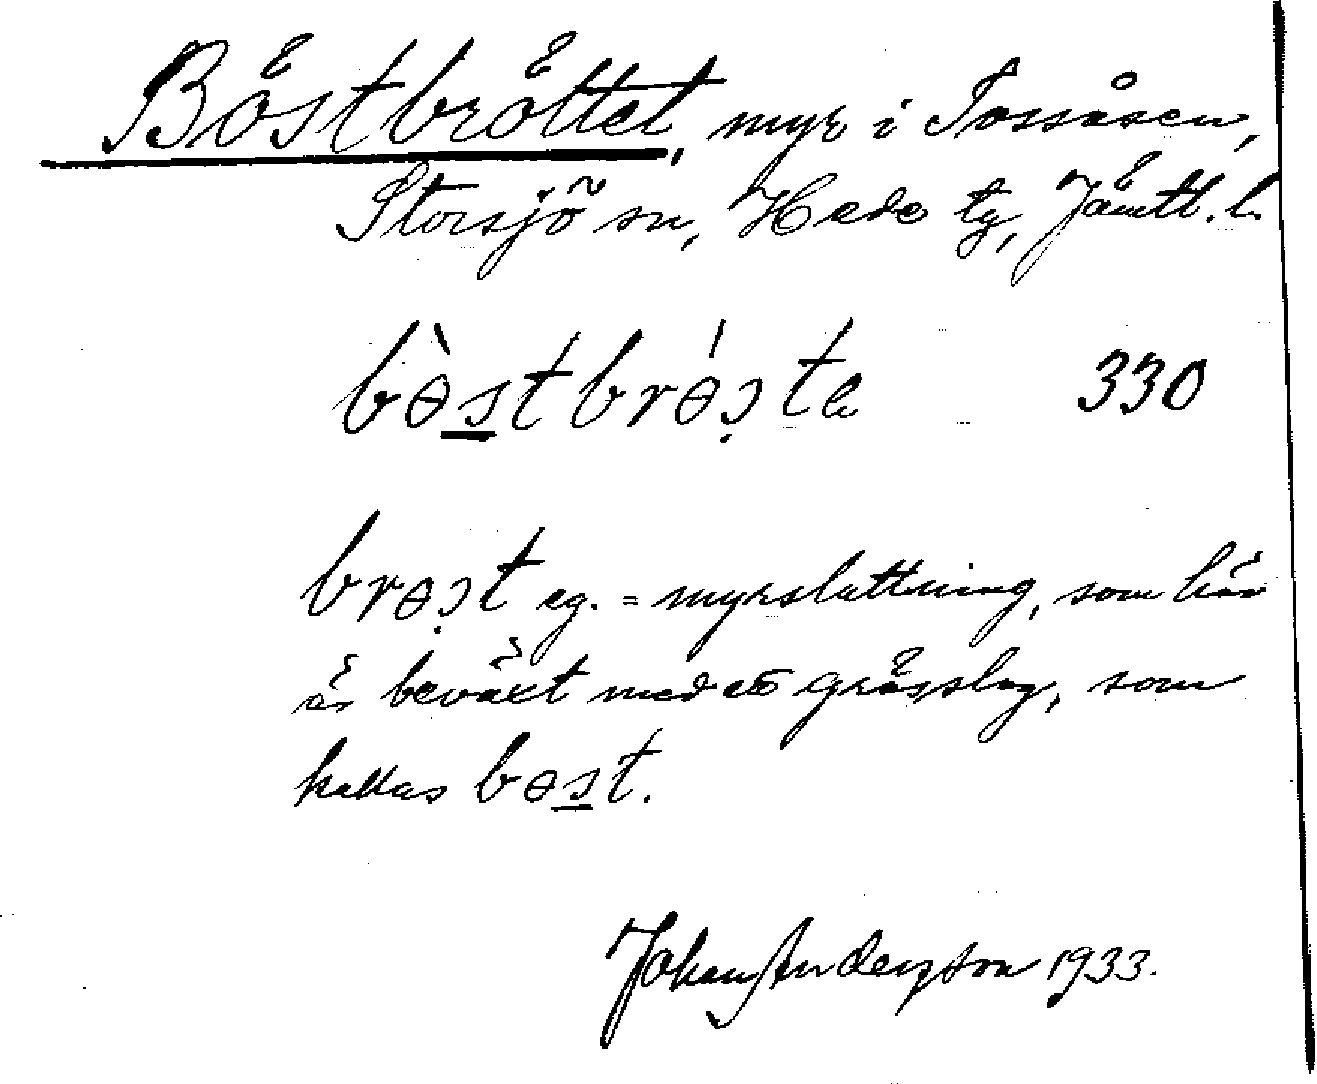 Båstbråttet, myr i Tossåsen,
Storsjö sn, Hede tg, Jämtl. l.
bɵ̀stbrɵ́ɔ̣ta 330
brɵɔ̣t eg. = myrslåttning, som här
är beväxt med ett grässlag, som
kallas bɵst.
Johan Anderzson 1933.